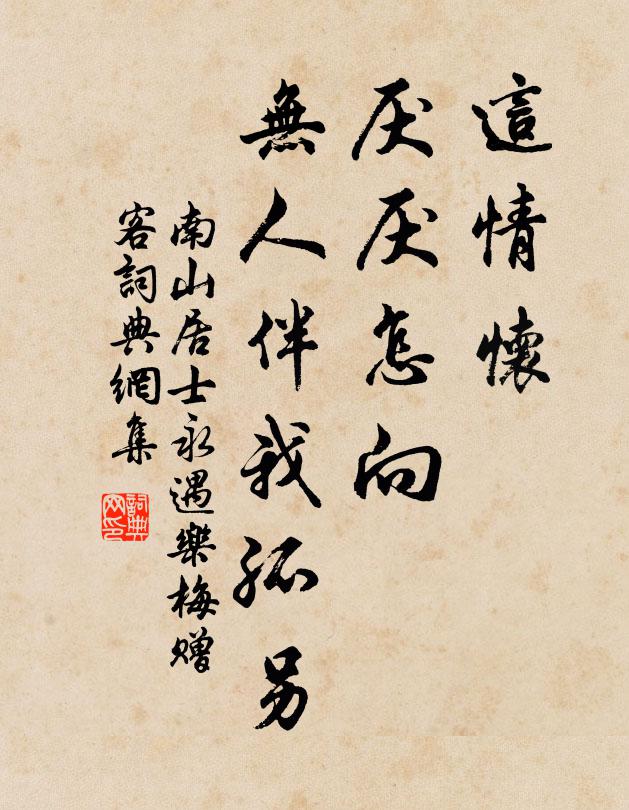 這情懷
厌厌怎向
無人伴我孤另
南山居士永遇樂梅贈
客詞典網集
詞典
网印